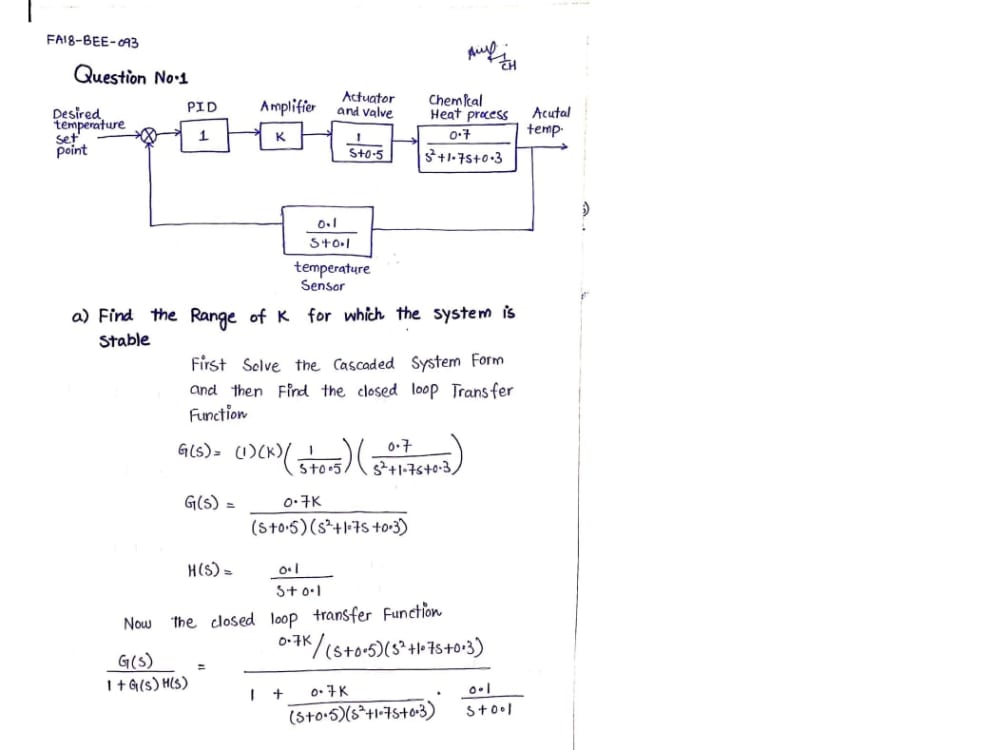 FA18-BEE-093
CH
Question No.1
Desired temperature set point
PID
1
Amplifier
K
Actuator and valve
1
S+0.5
Chemical Heat process
0.7
S²+1.7S+0.3
Acutal temp.
0.1
S+0.1
temperature Sensor
a) Find the Range of K for which the system is
Stable
First Solve the Cascaded System Form
and then Find the closed loop Transfer
Function
G(S) = (1)(K)(1/S+0.5)(0.7/S²+1.7S+0.3)
G(S) = 0.7K/(S+0.5)(S²+1.7S+0.3)
H(S) = 0.1/S+0.1
Now the closed loop transfer Function
G(S)/1+G(S)H(S) = 0.7K/(S+0.5)(S²+1.7S+0.3)
1 + 0.7K/(S+0.5)(S²+1.7S+0.3) . 0.1/S+0.1